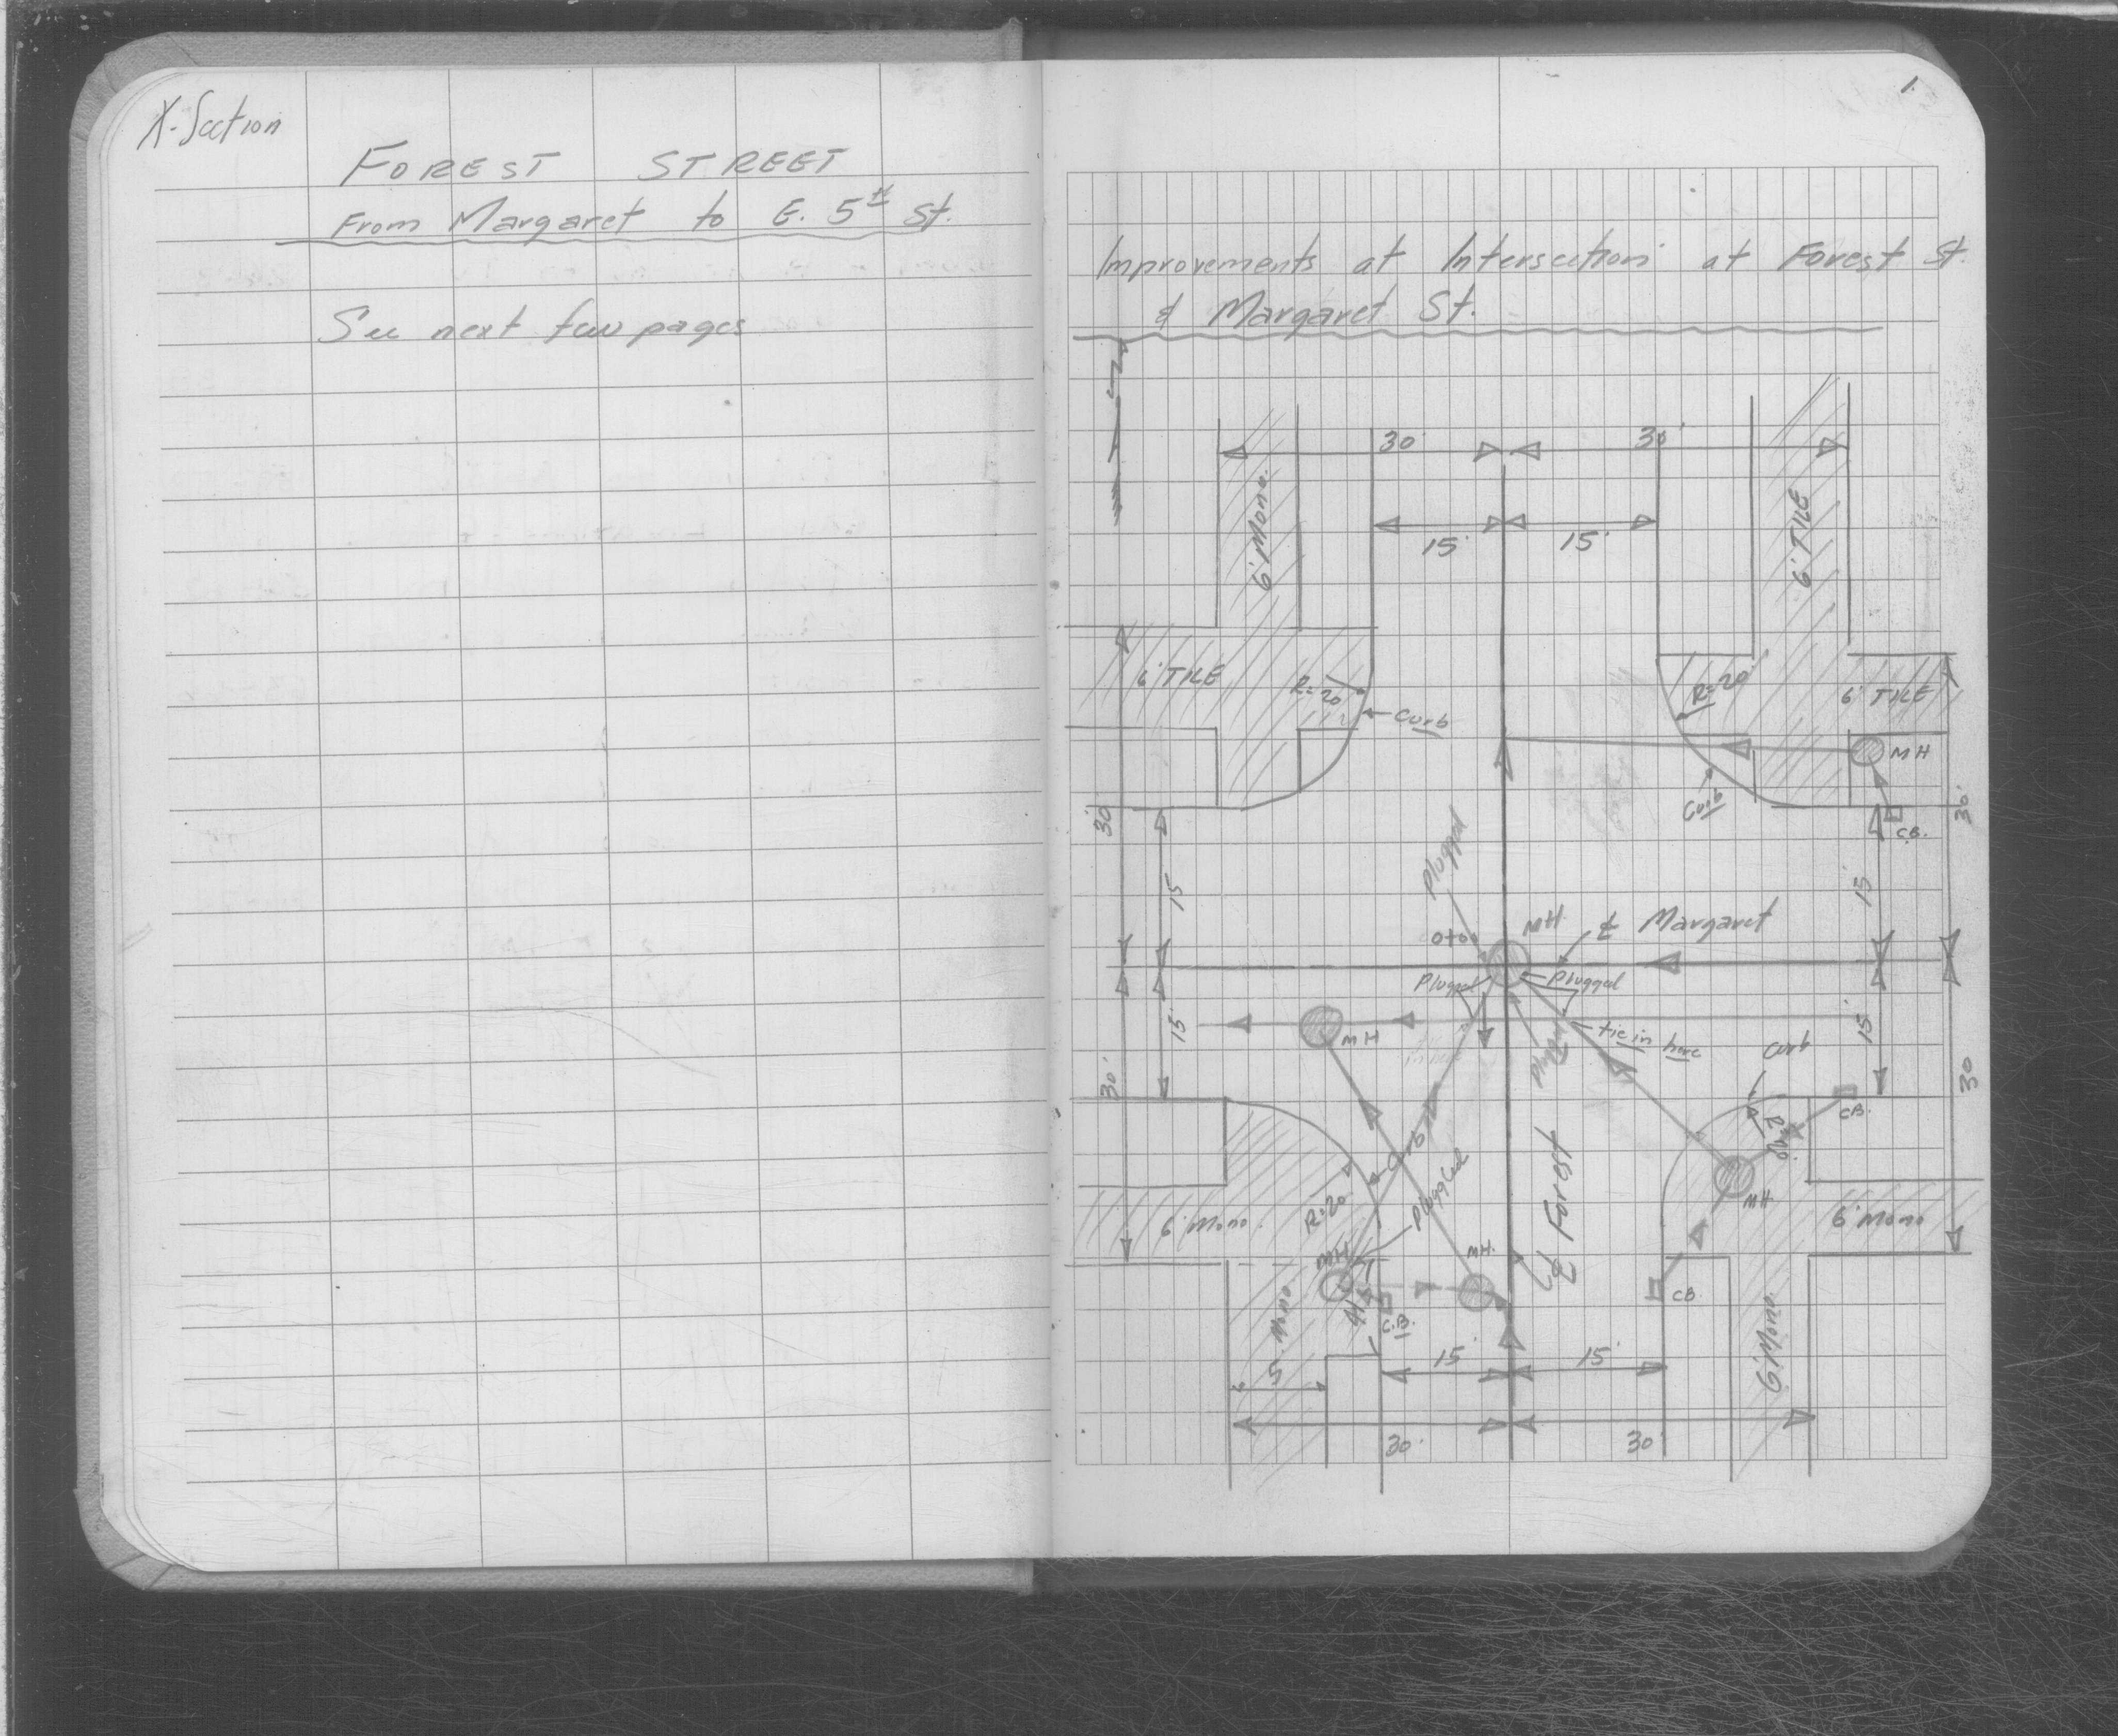 X-Section
FOREST STREET
From Margaret to E. 5th St.
See next few pages
1.
Improvements at Intersection at Forest St.
& Margaret St.
30' 30'
15' 15'
6' Mono.
6' TILE
6' TILE
R=20'
Curb
R=20'
6' TILE
MH
Curb
C.B.
30'
30'
15'
15'
Plugged
MH
℄ Margaret
0+00
Plugged
Plugged
tie in here
MH
Plugged
15'
15'
30'
30'
Curb
C.B.
R=20'
Curb
MH
℄ Forest
Plugged
R=20'
6' Mono.
6' Mono
MH
MH.
C.B.
CB
5' Mono
6' Mono.
15' 15'
5'
30' 30'